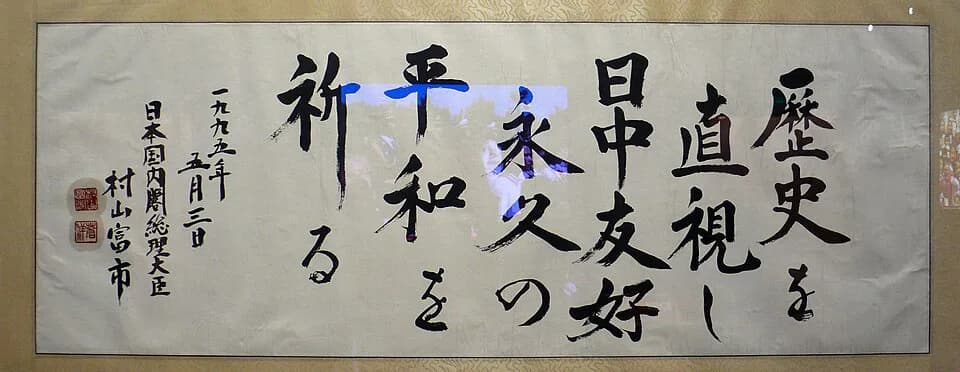 歴史を
直視し
日中友好
永久の
平和を
祈る
一九九五年
五月三日
日本国内閣総理大臣
村山富市